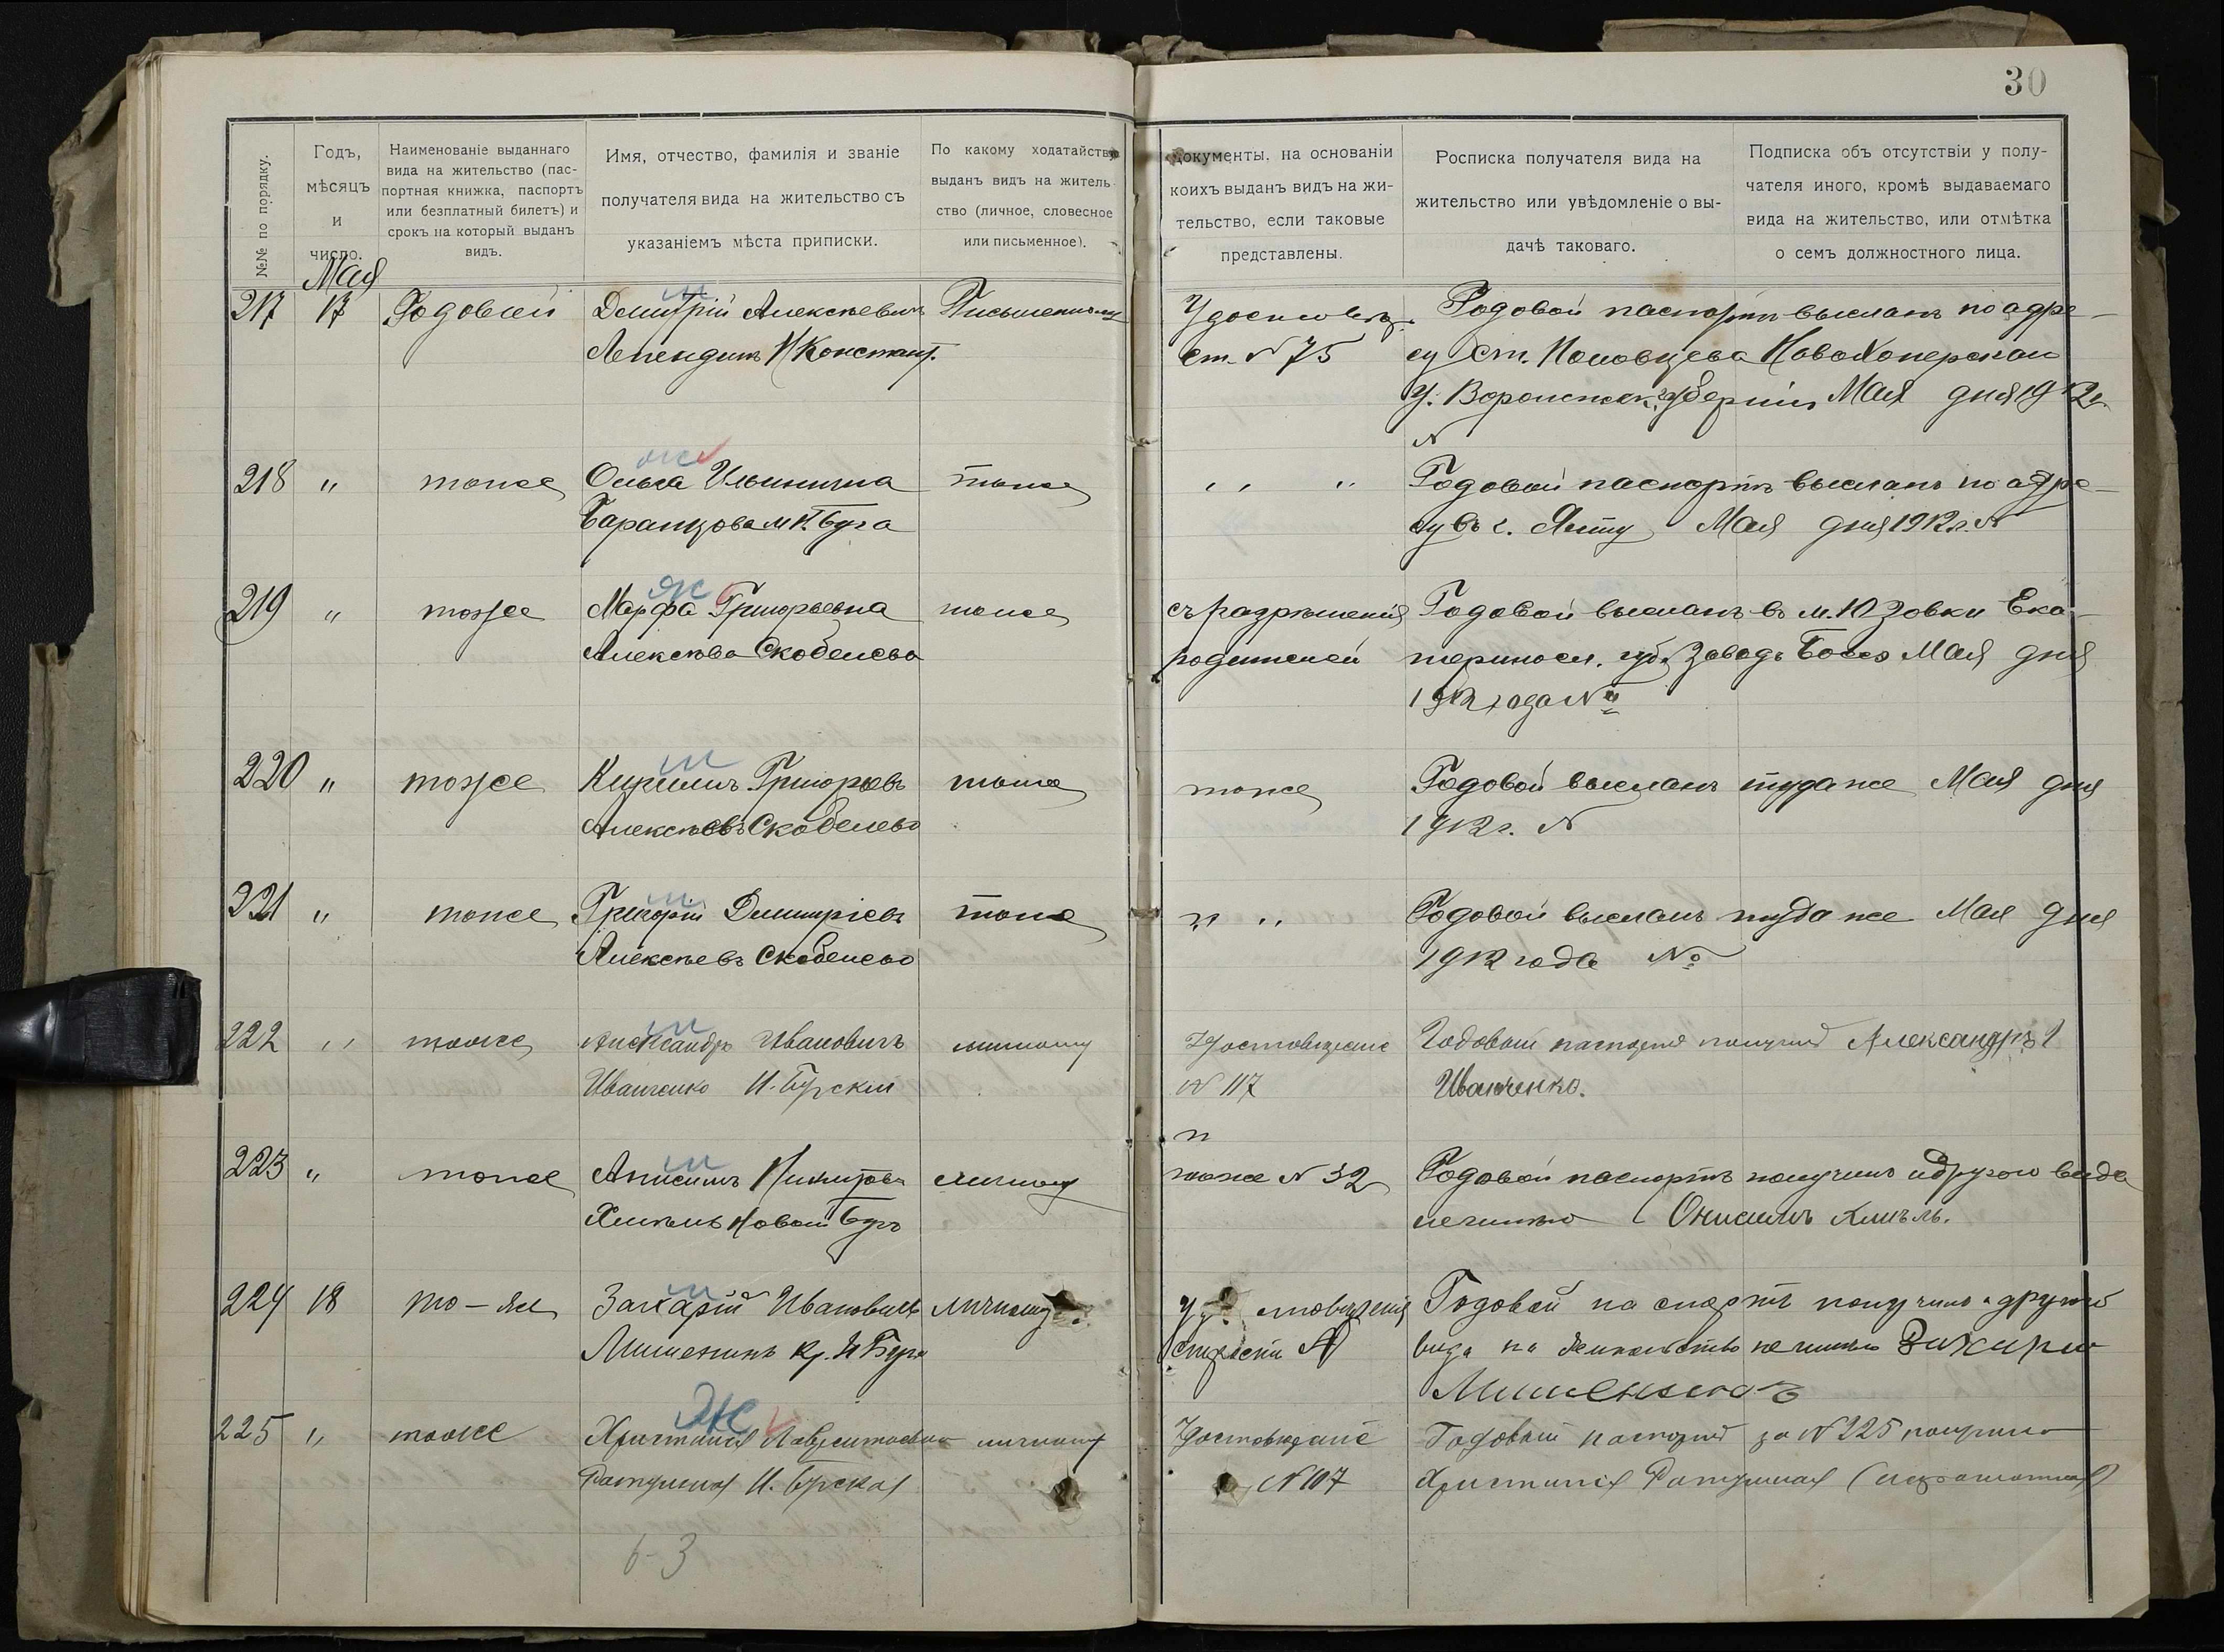 30
№№ по порядку.
Годъ, мѣсяцъ и число.
Наименованіе выданнаго вида на жительство (паспортная книжка, паспортъ или безплатный билетъ) и срокъ на который выданъ видъ.
Имя, отчество, фамилія и званіе получателя вида на жительство съ указаніемъ мѣста приписки.
По какому ходатайству выданъ видъ на жительство (личное, словесное или письменное).
Документы, на основаніи коихъ выданъ видъ на жительство, если таковые представлены.
Росписка получателя вида на жительство или увѣдомленіе о выдачѣ таковаго.
Подписка объ отсутствіи у получателя иного, кромѣ выдаваемаго вида на жительство, или отмѣтка о семъ должностного лица.
Мая
217 17 Годовый Дмитрій Алексѣевичъ Письменному
Лепендинъ Н Констант.
ст. № 75
Годовой паспортъ высланъ по адре-
су ст. Половцева Новохоперскаго
у. Воронежск. губерніи Мая дня 1912 г.
№
218 " тоже Ольга Ильинична тоже
Баранцова м Н. Буга
" "
Годовой паспортъ высланъ по адре-
су въ г. Ялту Мая дня 1912 г. №
219 " тоже Марфа Григорьевна тоже
Алексѣева Скобелево
съ разрѣшенія
родителей
Годовой высланъ въ м. Юзовки Ека-
теринос. губ. Заводъ Боссэ Мая дня
1912 года №
220 " тоже Кириллъ Григорьевъ тоже
Алексѣевъ Скобелево
тоже
Годовой высланъ туда же Мая дня
1912 г. №
221 " тоже Григорій Димитріевъ тоже
Алексѣевъ Скобелево
" "
Годовой высланъ туда же Мая дня
1912 года №
222 " тоже Александръ Ивановичъ личному
Иванченко Н. Бугскій
Удостовѣреніе
№ 117
Годовый паспортъ получилъ Александръ
Иванченко.
223 " тоже Анисимъ Никитовъ личному
Хмѣль Новый Бугъ
"
тоже № 32
Годовой паспортъ получилъ и другого вида
не имѣю Онисимъ Хмѣль.
224 18 то-же Захарій Ивановичъ личному
Мишенинъ кр. Н Буга
старосты №
Годовой паспортъ получилъ и другого
вида на жительство не имѣю Захарій
Мишенинъ
225 " тоже Христинія Лаврентьевна личному
Ратушная Н. Бугская
Удостовѣреніе
№ 107
Годовый паспортъ за № 225 получила
Христинія Ратушная (неграмотная)
6-3